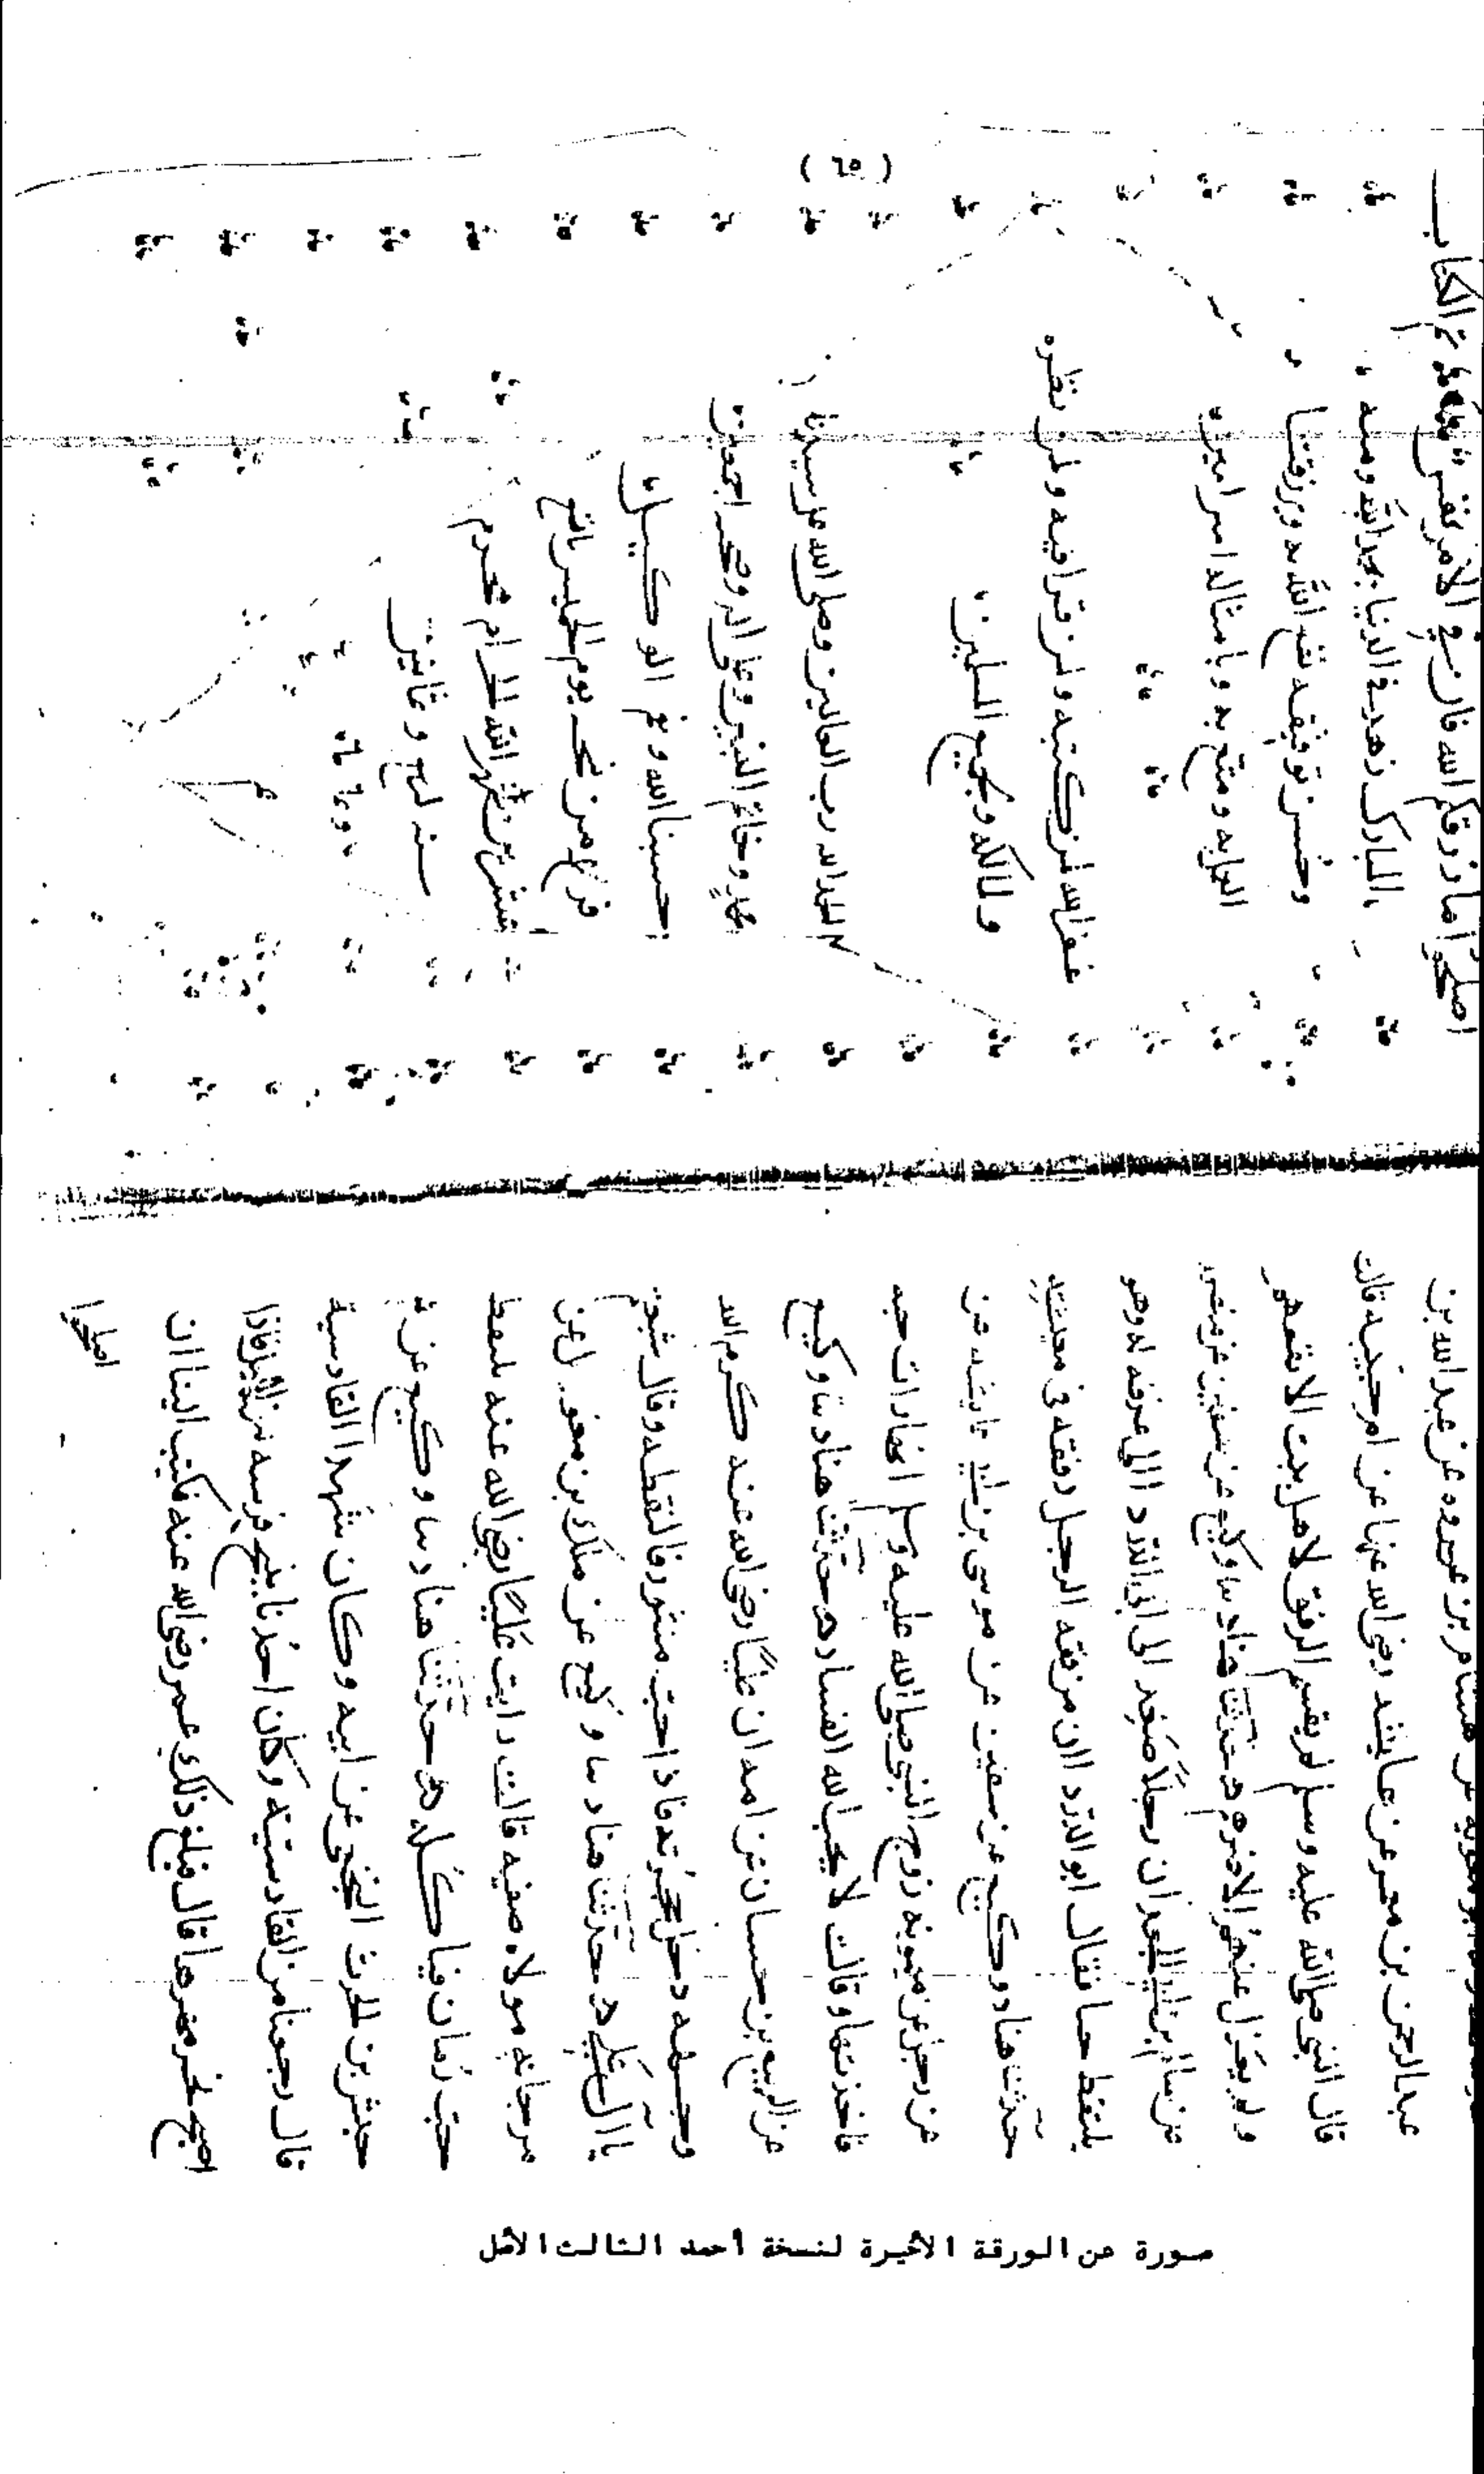 عبد الرحمن بن معمر عن عايشه رضي الله عنها عن ام حبيبه قالت
قال النبي صلى الله عليه وسلم لم يقسم الرفق لاهل بيت الا نفعهم
ولم يعزل عنهم الا ضرهم حدثنا هناد سا وكيع عن سفين عن منصور
عن سالم بن ابي الجعد ان رجلا صعد الى ابي الدردا الى غرفه له وهو
يلتقط حبا فقال ابو الدردا ان من فقه الرجل رفقه في معيشته
حدثنا هناد وكيع عن سفين عن موسى بن عايشه عن
عن رجل عن ميمونه زوج النبي صلى الله عليه وسلم انها رات حبه
فاخذتها وقالت لا يحب الله الفساد حدثنا هناد سا وكيع
عن الربيع بن حسان عن امه ان عليا رضي الله عنه كرم الله
وجهه دخل حجرته فاذا حب منثور فالتقطه وقال شبعتم
يا آل علي حدثنا هناد سا وكيع عن ملك بن مغول عن
مرجانه مولاه صفيه قالت رايت عليا رضي الله عنه يلتقط
حب رمان فياكله حدثنا هناد سا وكيع عن
حنش بن الحرث النخعي عن ابيه وكان شهدا القادسية
قال رجعنا من القادسية وكان احدنا ينتج فرسه من الليل فاذا
اصبح نحر مهرها قال فبلغ ذلك عمر رضي الله عنه فكتب الينا ان
اصلحوا
( ٦٥ )
اصلحوا ما رزقكم الله فان في الامر نفس تم الكتاب
المبارك زهد في الدنيا بحمد الله ومنه
وحسن توفيقه نفع الله به ويرزقنا
العمل به ومتع به وبامثاله امين امين
غفر الله لمن كتبه ولمن قرا فيه ولمن نظره
ولمالكه وجميع المسلمين
الحمد لله رب العالمين وصلى الله على سيدنا
محمد وخاتم النبيين وعلى اله وصحبه اجمعين
حسبنا الله ونعم الوكيل
فرغ من نسخه يوم الخميس رابع
عشرين شهر الله الحرام محرم
سنه اربع وثمانين
صورة عن الورقة الأخيرة لنسخة أحمد الثالث الأصل